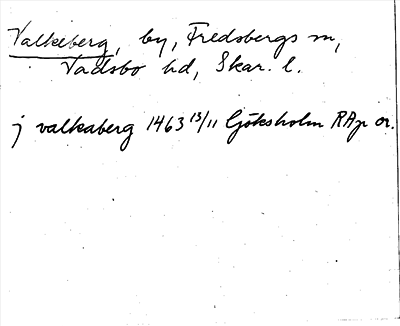 Valkeberg, by, Fredsbergs sn,
Vadsbo hd, Skar. l.
j valkaberg 1463 13/11 Göksholm RAp or.